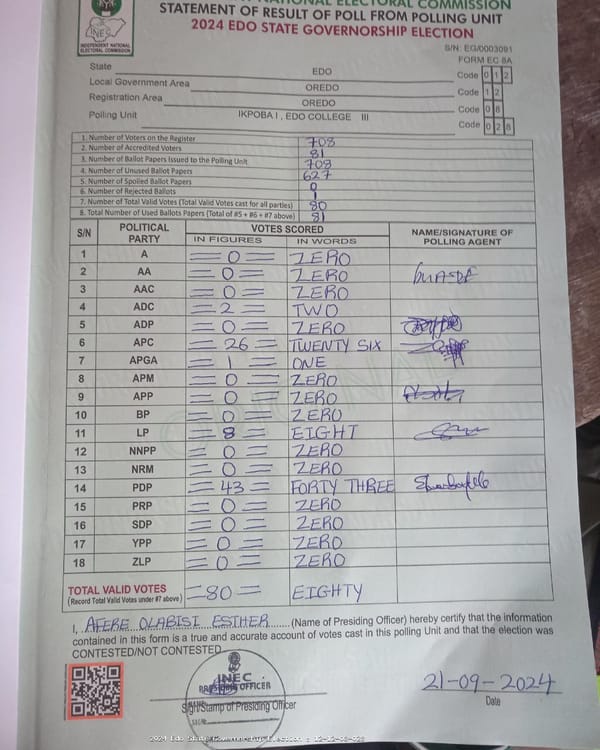 NATIONAL ELECTORAL COMMISSION
STATEMENT OF RESULT OF POLL FROM POLLING UNIT
2024 EDO STATE GOVERNORSHIP ELECTION
INEC
INDEPENDENT NATIONAL
ELECTORAL COMMISSION
S/N: EG/0003091
FORM EC 8A
State EDO Code 0 1 2
Local Government Area OREDO Code 1 2
Registration Area OREDO Code 0 8
Polling Unit IKPOBA I , EDO COLLEGE III Code 0 2 8
1. Number of Voters on the Register 708
2. Number of Accredited Voters 81
3. Number of Ballot Papers Issued to the Polling Unit 708
4. Number of Unused Ballot Papers 627
5. Number of Spoiled Ballot Papers 0
6. Number of Rejected Ballots 1
7. Number of Total Valid Votes (Total Valid Votes cast for all parties) 80
8. Total Number of Used Ballots Papers (Total of #5 + #6 + #7 above) 81
S/N POLITICAL PARTY VOTES SCORED NAME/SIGNATURE OF POLLING AGENT
IN FIGURES IN WORDS
1 A =0= ZERO
2 AA =0= ZERO
3 AAC =0= ZERO
4 ADC =2= TWO
5 ADP =0= ZERO
6 APC =26= TWENTY SIX
7 APGA =1= ONE
8 APM =0= ZERO
9 APP =0= ZERO
10 BP =0= ZERO
11 LP =8= EIGHT
12 NNPP =0= ZERO
13 NRM =0= ZERO
14 PDP =43= FORTY THREE
15 PRP =0= ZERO
16 SDP =0= ZERO
17 YPP =0= ZERO
18 ZLP =0= ZERO
TOTAL VALID VOTES =80= EIGHTY
(Record Total Valid Votes under #7 above)
I, AFERE OLABISI ESTHER (Name of Presiding Officer) hereby certify that the information
contained in this form is a true and accurate account of votes cast in this polling Unit and that the election was
CONTESTED/NOT CONTESTED
INEC
PRESIDING OFFICER
Sign/Stamp of Presiding Officer
21-09-2024
Date
2024 Edo State Governorship Election : 12-12-08-028